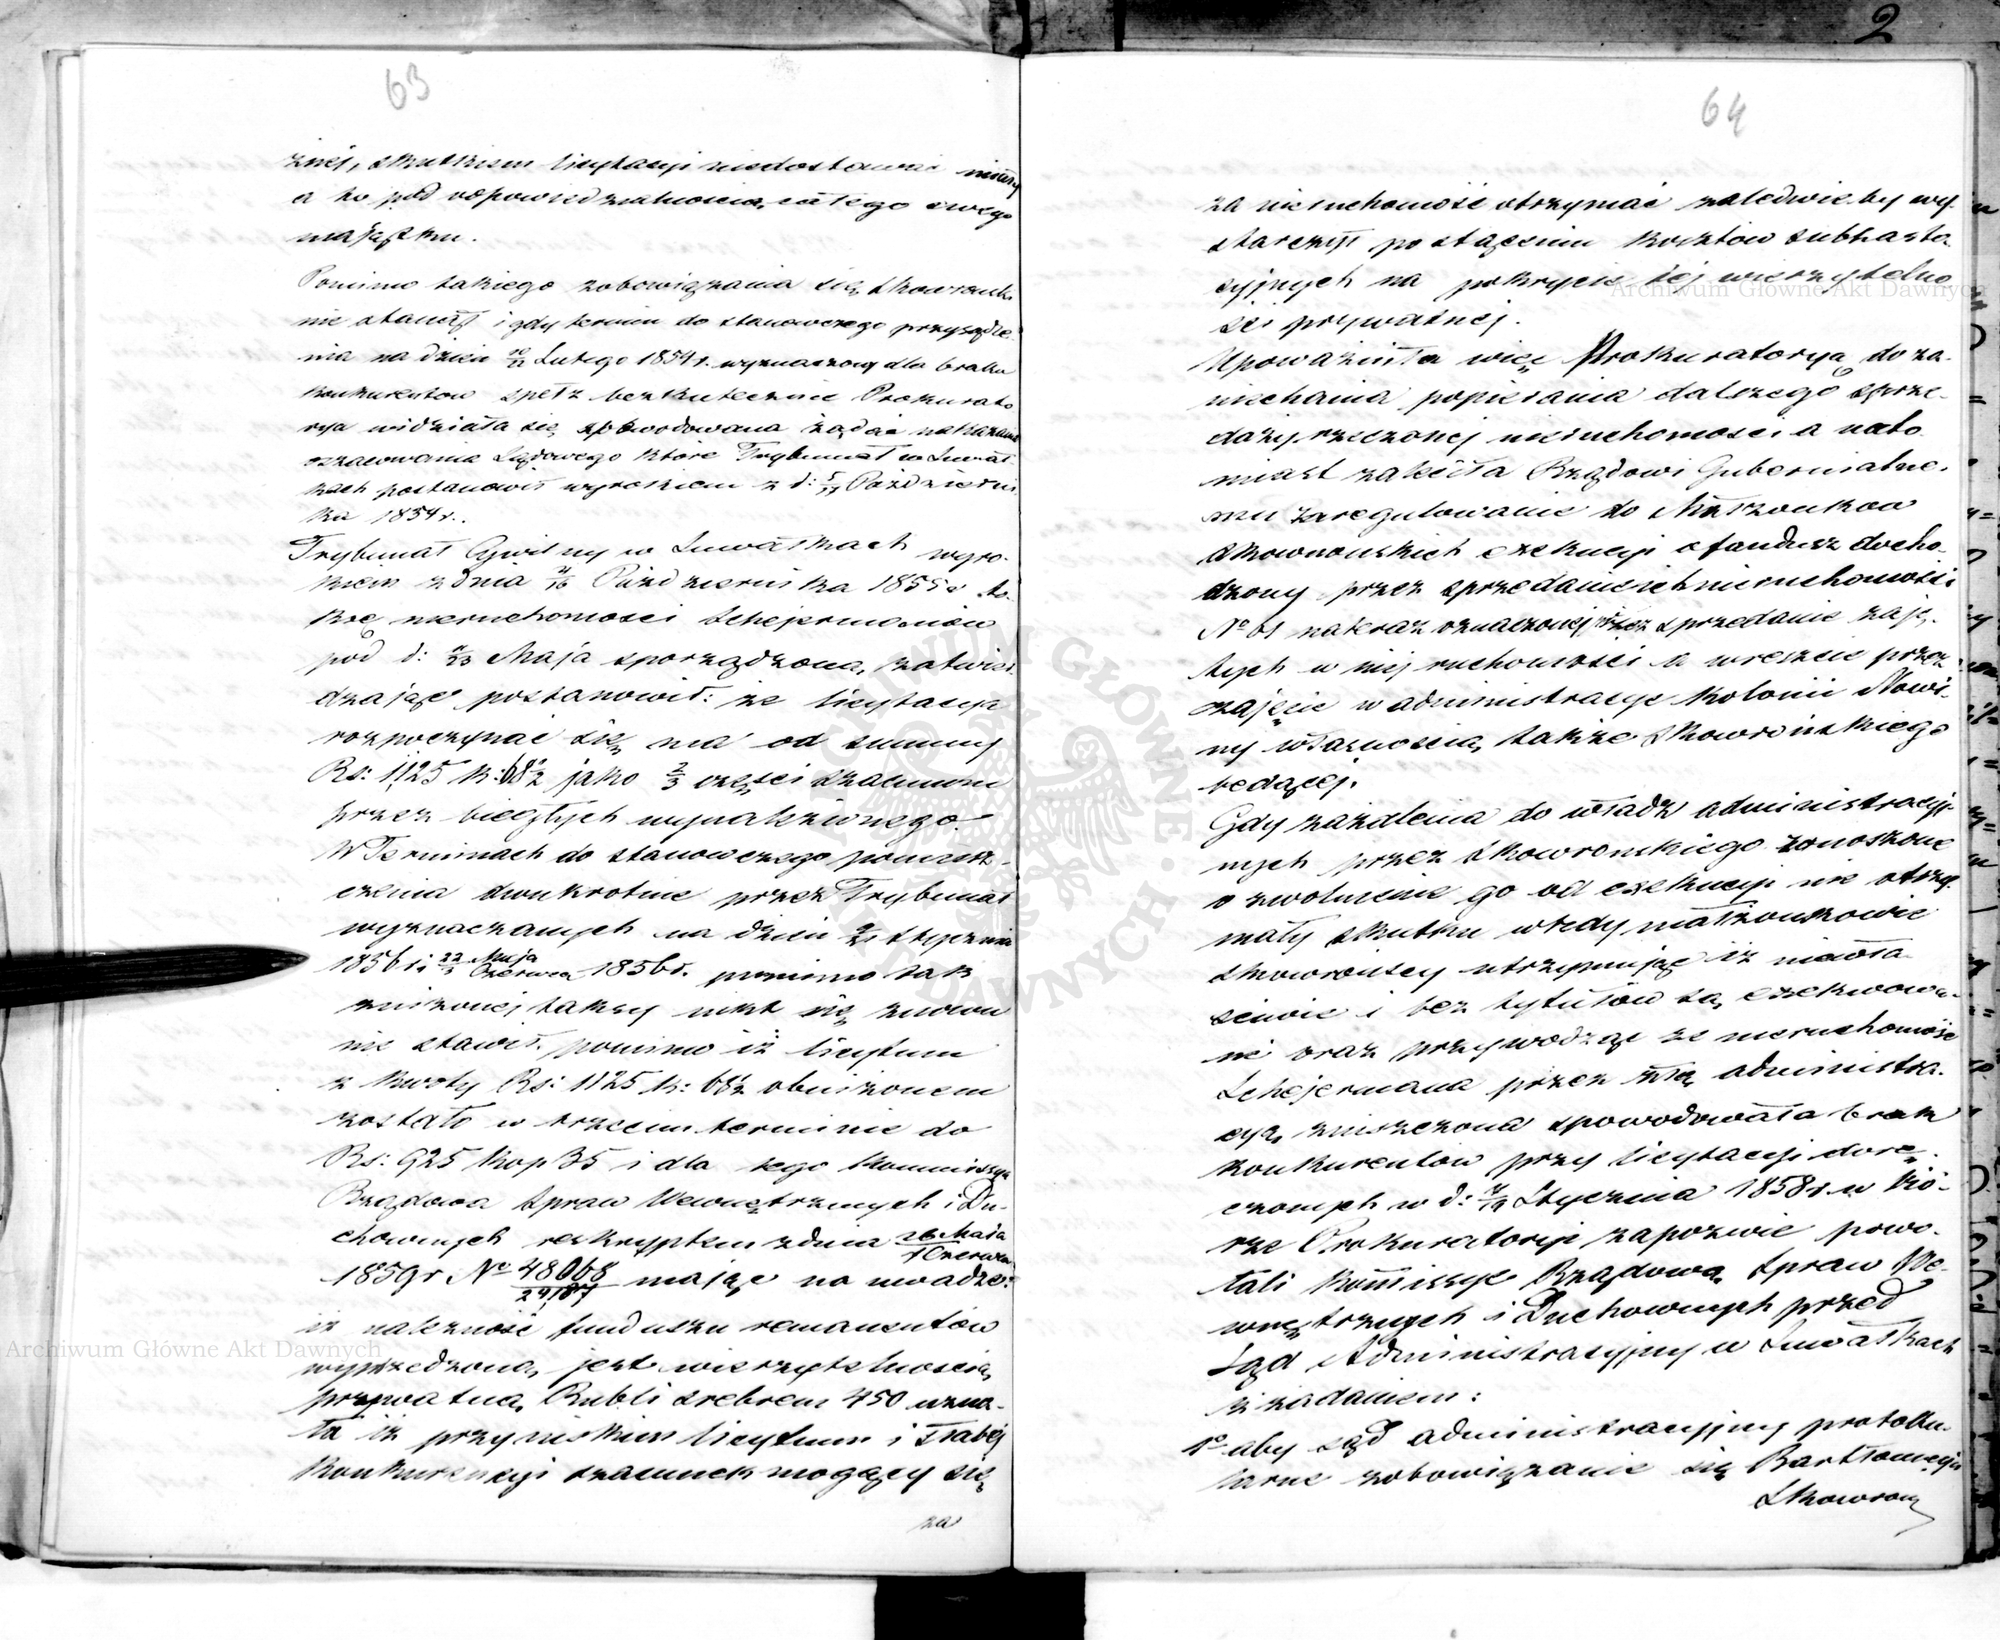 63
żnej, skutkiem licytacyi niedostawać miany
a to pod odpowiedzialnością całego swego
majątku.
Pomimo takiego zobowiązania się Skowroński
nie stanął i gdy termin do stanowczego przysądze-
nia na dzień 10/22 Lutego 1854 r. wyznaczony dla braku
konkurentów spełz bezkutecznie Prokurato
rya widziała się spowodowana żądać nakazania
oszacowania Sądowego które Trybunał w Suwał
kach postanowił wyrokiem z d: 5/17 Październi
ka 1854 r.
Trybunał Cywilny w Suwałkach wyro-
kiem z dnia 4/16 Października 1855 r. ta-
xę nieruchomości Schejermanów
pod d: 11/23 Maja sporządzoną, zatwier-
dzając postanowił: że licytacya
rozpoczynać się ma od summy
Rs: 1,125 k: 68½ jako 2/3 części szacunku
przez biegłych wynalezionego.
W Terminach do stanowczego pomiesz-
czenia dwukrotnie przez Trybunał
wyznaczanych na dzień 9/21 Stycznia
1856 r i 22 Maja/3 Czerwca 1856 r. pomimo tak
zniżonej taksy nikt się znowu
nie stawił, pomimo iż licytum
z kwoty Rs: 1125 k: 68½ obniżonem
zostało w trzecim terminie do
Rs: 925 kop 35 i dla tego Kommissya
Rządowa Spraw Wewnętrznych i Du-
chownych reskryptem z dnia 26 Maja/7 Czerwca
1859 r No 48068/29187 mając na uwadze:
iż należność funduszu remanentów
wyprzedzona, jest wierzytelnością
prywatną, Rubli srebrem 450 uzna-
ła iż przy niskim licytum i słabej
konkurencyi szacunek mogący się
za
2
64
za nieruchomość otrzymać zaledwie by wy-
starczył po strąceniu kosztów subhasta-
cyjnych na pokrycie tej wierzytelno
ści prywatnej.
Upoważniła więc Prokuratoryą do za-
niechania popierania dalszego sprze-
daży rzeczonej nieruchomości a nato-
miast zaleciła Rządowi Gubernialne-
mu zaregulowanie do Małżonków
Skowrońskich exekucyi o fundusz docho-
dzony przez sprzedanie ich nieruchomości
No 61 nateraz oznaczonej przez sprzedanie zaję-
tych w niej ruchomości a wreszcie przez
zajęcie w administracyę kolonii Nowi-
ny własnością także Skowrońskiego
będącej.
Gdy zażalenia do władz administracyj-
nych przez Skowrońskiego zanoszone
o zwolnienie go od exekucyi nie otrzy
mały skutku wtedy małżonkowie
Skowrońscy utrzymując iż niewła-
ściwie i bez tytułów są exekwowa-
ni oraz przywodząc że nieruchomość
Schejermana przez złą administra-
cyą, zniszczona spowodowała brak
konkurentów przy licytacyi dorę-
czonych w d: 7/19 Stycznia 1858 r. w Biu-
rze Prokuratoryi zapozwie powo-
łali Kommissyę Rządową Spraw We-
wnętrznych i Duchownych przed
Sąd Administracyjny w Suwałkach
z żądaniem:
1o aby sąd administracyjny protoku-
larne zobowiązanie się Bartłomieja
Skowroń
Archiwum Główne Akt Dawnych
Archiwum Główne Akt Dawnych
ARCHIWUM GŁÓWNE AKT DAWNYCH